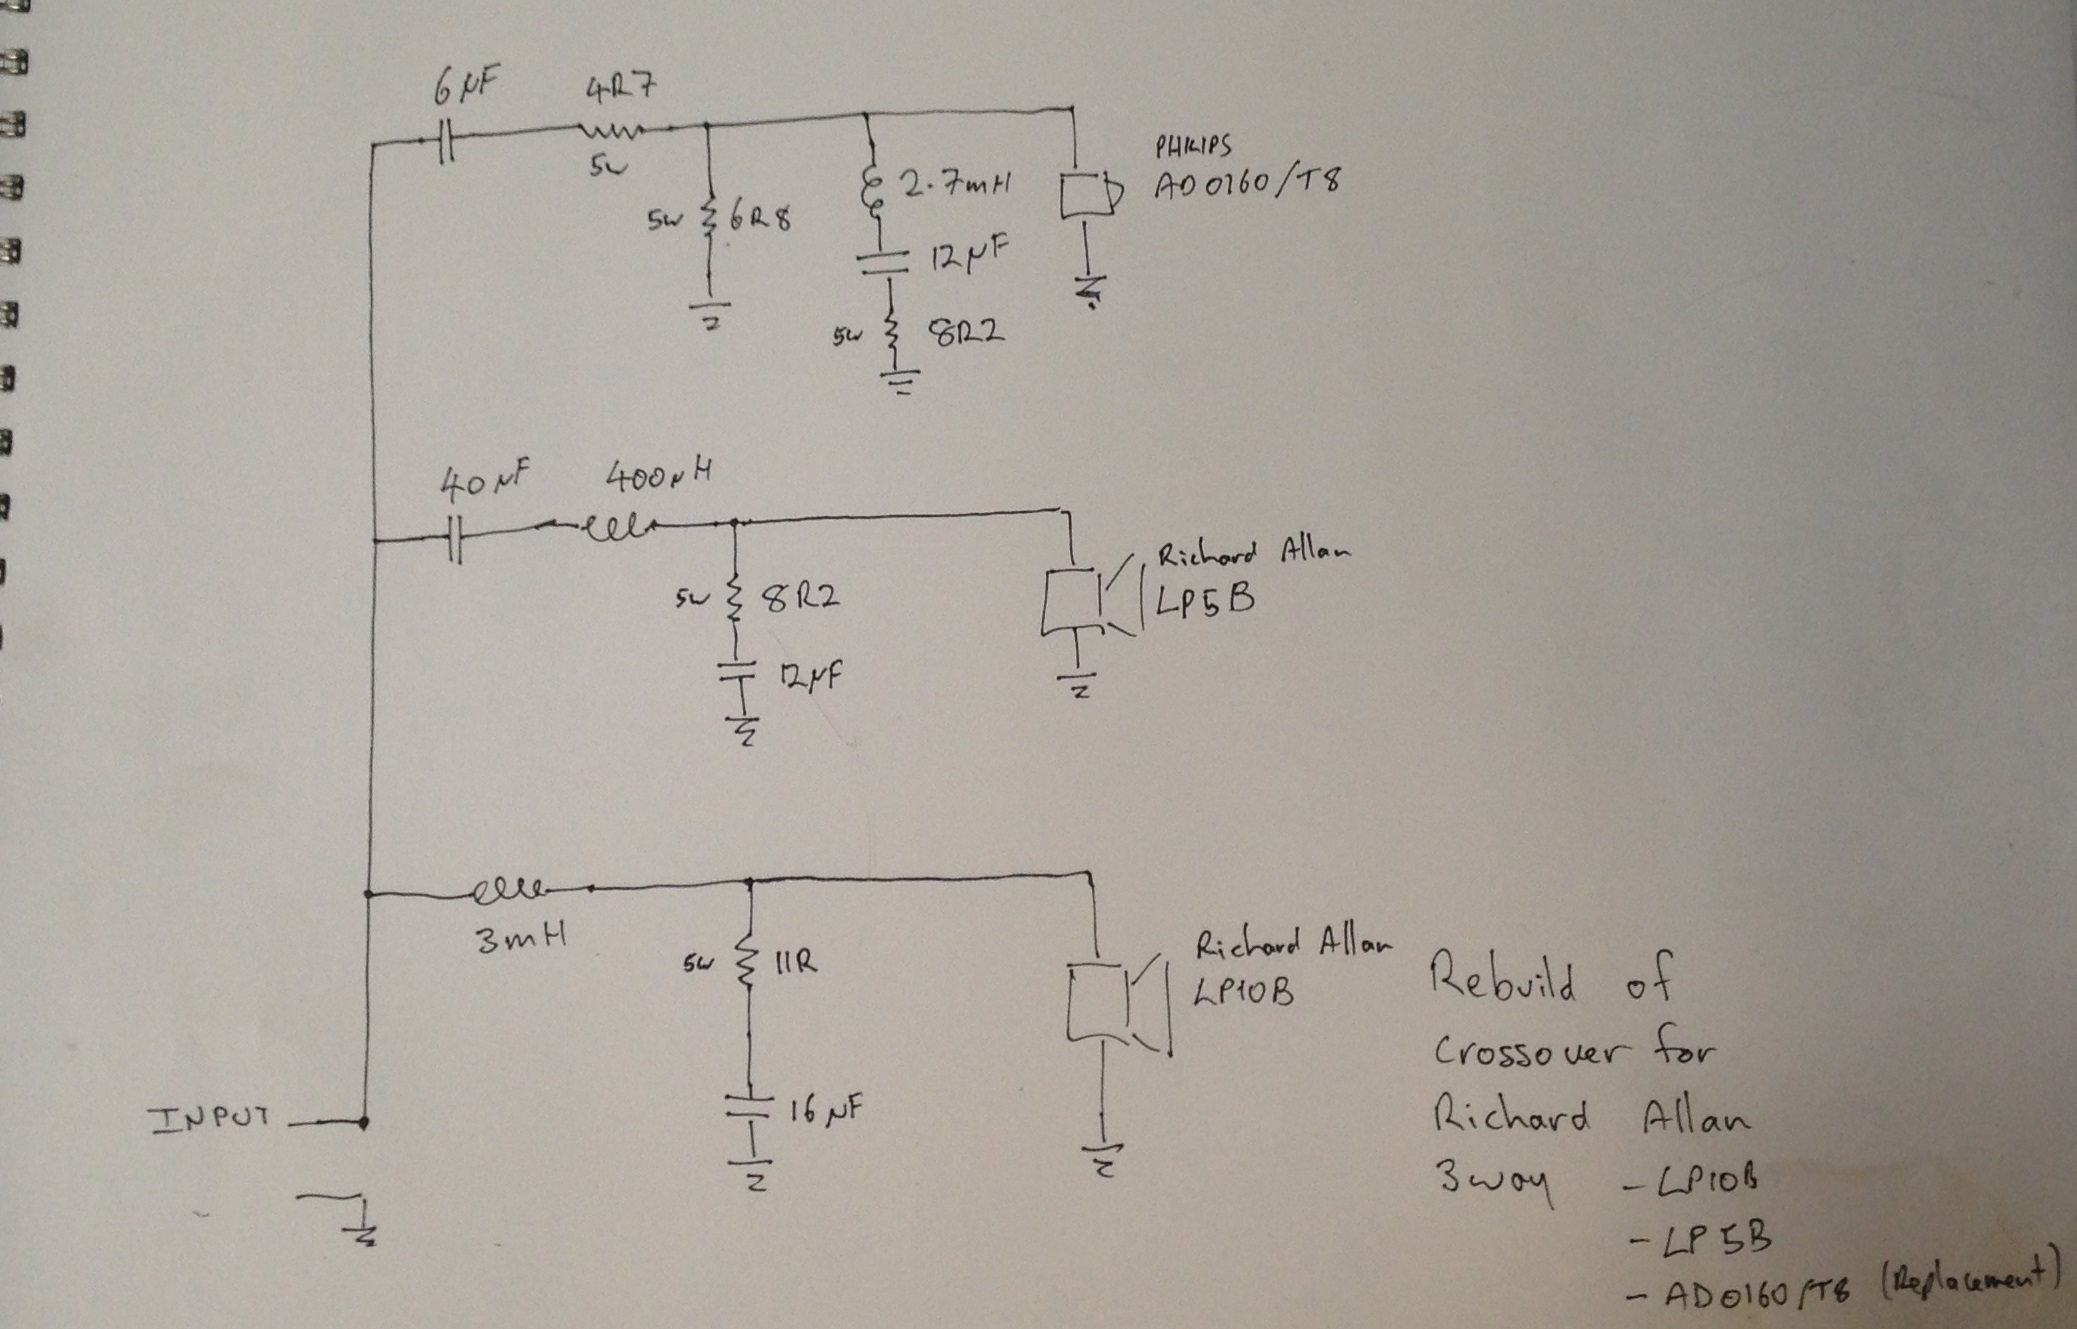 6µF
4R7
5w
5w
6R8
2.7mH
12µF
5w
8R2
PHILIPS
AD0160/T8
40µF
400µH
5w
8R2
12µF
Richard Allan
LP5B
3mH
5w
11R
16µF
Richard Allan
LP10B
INPUT
Rebuild of
Crossover for
Richard Allan
3way - LP10B
- LP5B
- AD0160/T8 (Replacement)